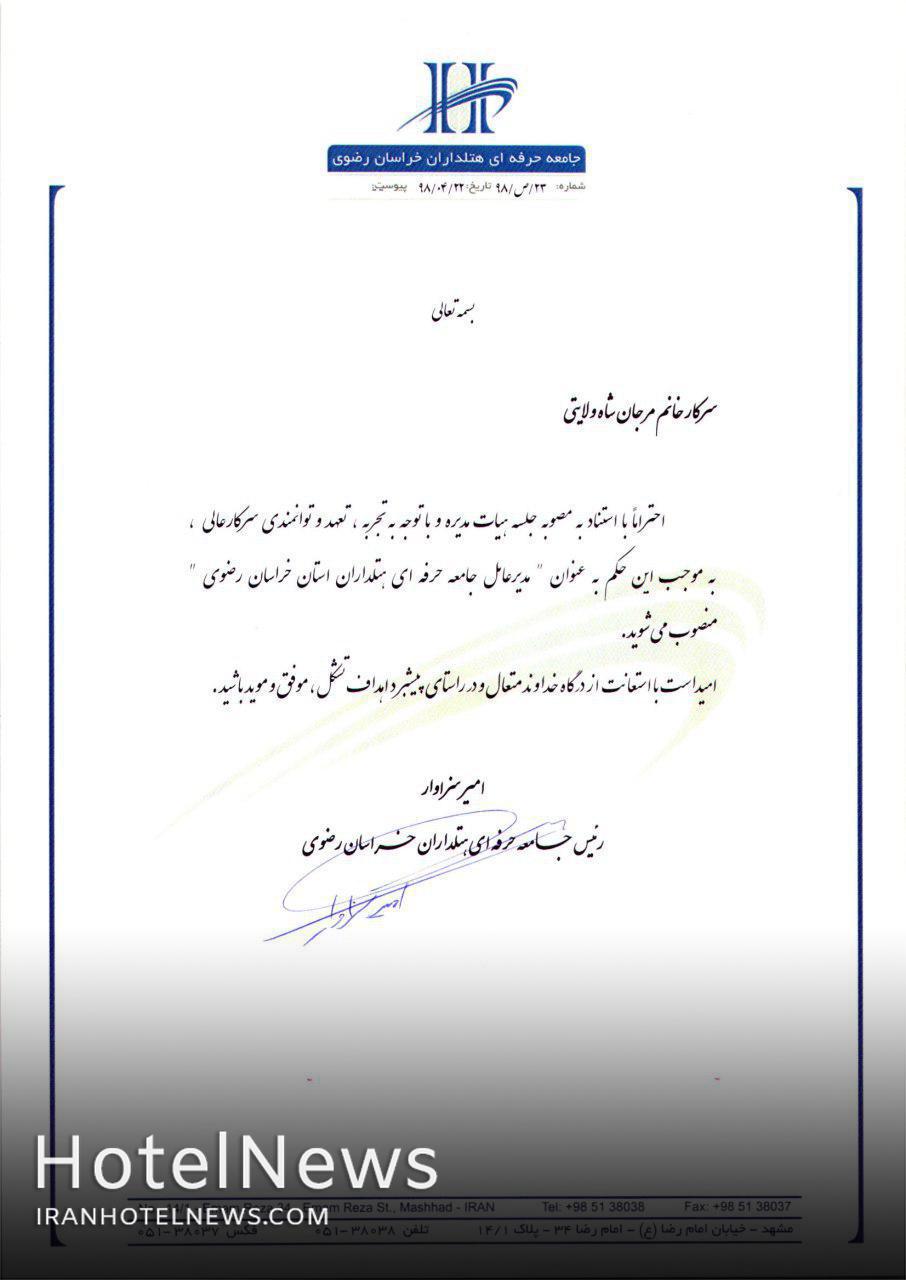 جامعه حرفه ای هتلداران خراسان رضوی
شماره: ۲۳/ص/۹۸ تاریخ: ۹۸/۰۴/۲۲ پیوست:
بسمه تعالی
سرکار خانم مرجان شاه ولایتی
احتراماً با استناد به مصوبه جلسه هیات مدیره و با توجه به تجربه ، تعهد و توانمندی سرکارعالی ،
به موجب این حکم به عنوان " مدیرعامل جامعه حرفه ای هتلداران استان خراسان رضوی "
منصوب می شوید.
امیداست با استعانت از درگاه خداوند متعال و در راستای پیشبرد اهداف تشکل ، موفق و موید باشید .
امیر سزاوار
رئیس جامعه حرفه ای هتلداران خراسان رضوی
امیر سزاوار
HotelNews
IRANHOTELNEWS.COM
Emam Reza 34 - Emam Reza St., Mashhad - IRAN Tel: +98 51 38038 Fax: +98 51 38037
مشهد - خیابان امام رضا (ع) - امام رضا ۳۴ - پلاک ۱۴/۱ تلفن ۳۸۰۳۸-۰۵۱ فکس ۳۸۰۳۷-۰۵۱